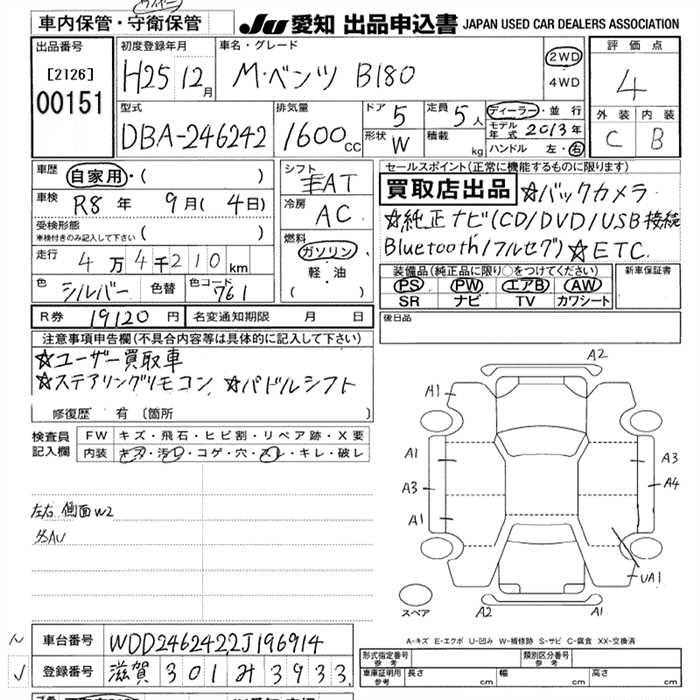 車内保管・守衛保管
JU 愛知 出品申込書 JAPAN USED CAR DEALERS ASSOCIATION
出品番号
[2126]
00151
初度登録年月
H25 12月
車名・グレード
M・ベンツ B180
2WD
4WD
評価点
4
外装 内装
C B
型式
DBA-246242
排気量
1600cc
ドア 5
形状 W
定員 5人
積載 kg
ディーラー・並行
モデル年式 2013年
ハンドル 左・右
車歴
自家用・( )
車検
R8年 9月(4日)
受検形態
※検付きのみ記入して下さい ( )
走行
4万4千210km
色 シルバー 色替 色コード 761
シフト
AT
冷房
AC
燃料
ガソリン・
軽・油
( )
セールスポイント(正常に機能するものに限ります)
買取店出品 ☆バックカメラ
☆純正ナビ(CD/DVD/USB接続
Bluetooth/フルセグ) ☆ETC
装備品(純正品に限り○をつけてください)
PS PW エアB AW
SR ナビ TV カワシート
新車保証書
R券 19120円 名変通知期限 月 日
後日品
注意事項申告欄(不具合内容等は具体的に記入して下さい)
☆ユーザー買取車
☆ステアリングリモコン ☆パドルシフト
修復歴 有 (箇所 )
検査員記入欄
FW キズ・飛石・ヒビ割・リペア跡・X要
内装 キズ・汚レ・コゲ・穴・スレ・キレ・破レ
左右 側面W2
A2
A1
A1 A3
A3 A4
A1
UA1
スペア
A2 A1
A-キズ E-エクボ U-凹み W-補修跡 S-サビ C-腐食 XX-交換済
車台番号 WDD2462422J196914
登録番号 滋賀 301 み 3933
形式指定番号 参考
類別区分番号 参考
車庫証明用 参考 長さ cm 幅 cm 高さ cm